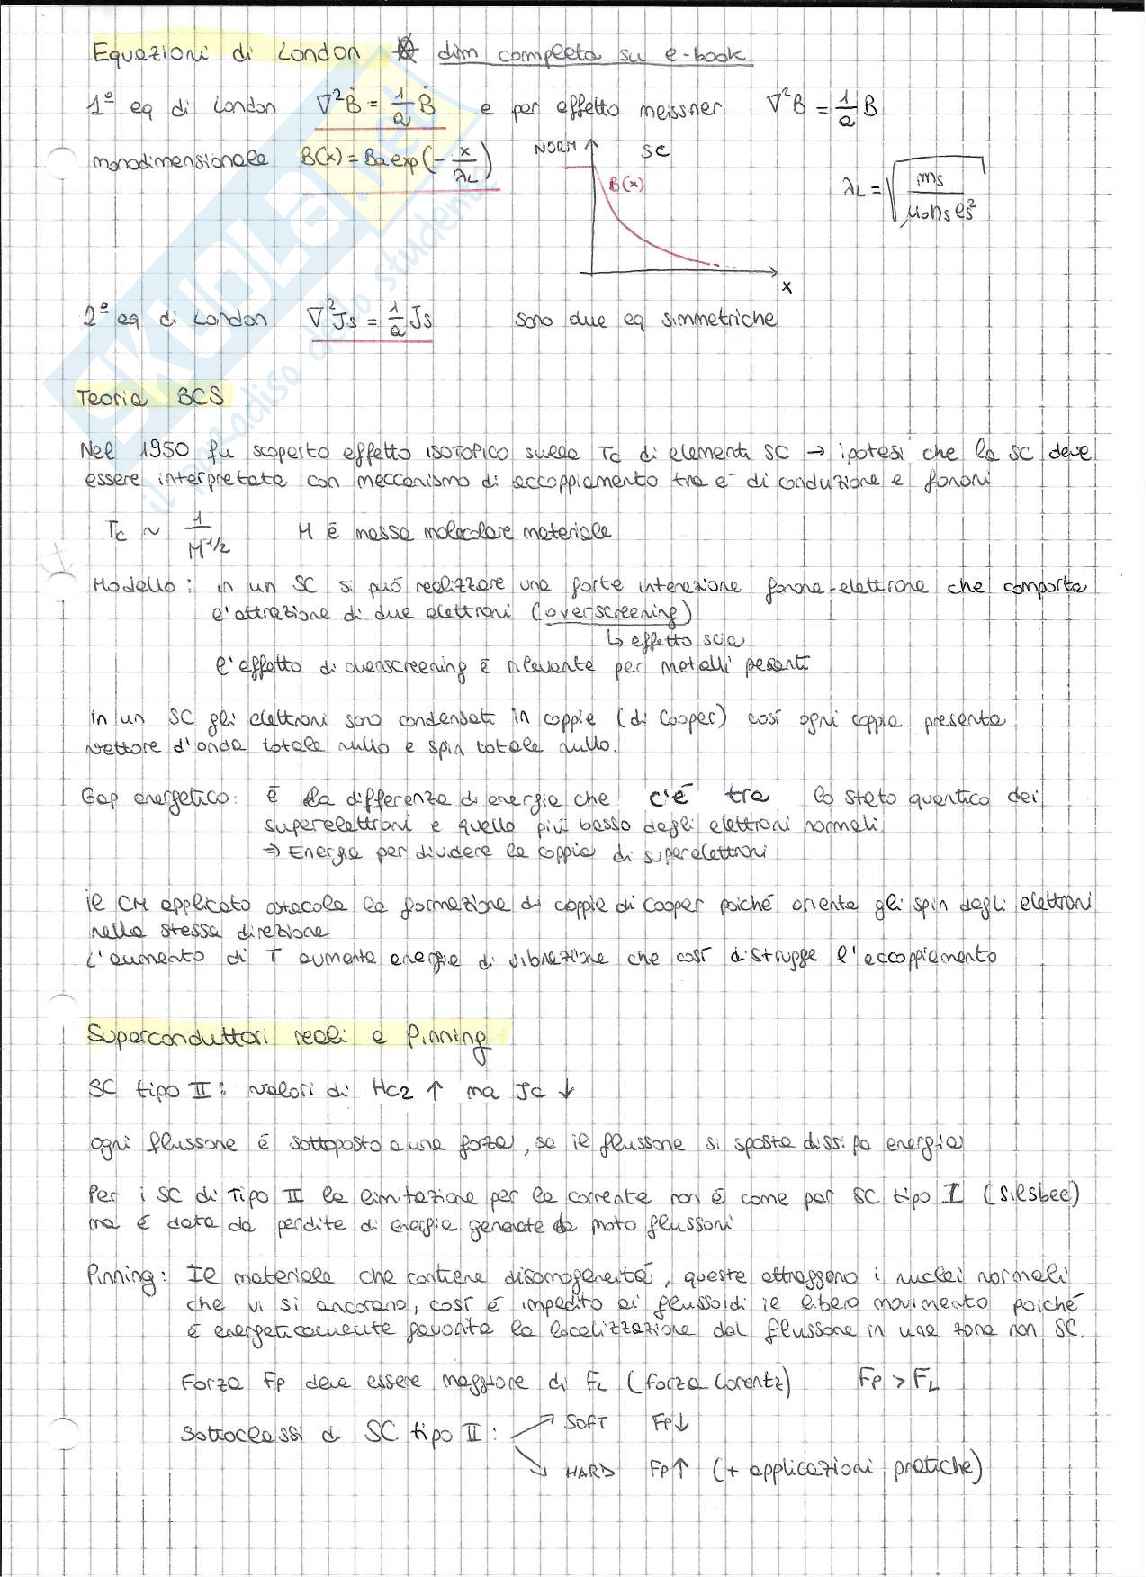 Equazioni di London dim completa su e-book
1ª eq di London ∇²Ḃ = 1/a Ḃ e per effetto meissner ∇²B = 1/a B
monodimensionale B(x) = Ba exp(-x/λL) NORM SC
B(x) λL = √(ms/μ0 ns es²)
x
2ª eq di London ∇²Js = 1/a Js sono due eq simmetriche
Teoria BCS
Nel 1950 fu scoperto effetto isotopico sulla Tc di elementi SC → ipotesi che la SC deve
essere interpretata con meccanismo di accoppiamento tra e⁻ di conduzione e fononi
Tc ~ 1/M^-1/2 M è massa molecolare materiale
Modello: in un SC si può realizzare una forte interazione fonone-elettrone che comporta
l'attrazione di due elettroni (overscreening)
↳ effetto scia
l'effetto di overscreening è rilevante per metalli pesanti
in un SC gli elettroni sono condensati in coppie (di Cooper) così ogni coppia presenta
vettore d'onda totale nullo e spin totale nullo.
Gap energetico: è la differenza di energia che c'è tra lo stato quantico dei
superelettroni e quello più basso degli elettroni normali
⇒ Energia per dividere la coppia di superelettroni
il CM applicato ostacola la formazione di coppie di Cooper poiché orienta gli spin degli elettroni
nella stessa direzione
L'aumento di T aumenta energia di vibrazione che così distrugge l'accoppiamento
Superconduttori reali e Pinning
SC tipo II: valori di Hc2 ↑ ma Jc ↓
ogni flussone è sottoposto a una forza, se il flussone si sposta dissipa energia
Per i SC di Tipo II la limitazione per la corrente non è come per SC tipo I (Silsbee)
ma è data da perdite di energia generate da moto flussoni
Pinning: Il materiale che contiene disomogeneità, queste attraggono i nuclei normali
che vi si ancorano, così è impedito ai flussoidi il libero movimento poiché
è energeticamente favorita la localizzazione del flussone in una zona non SC.
Forza Fp deve essere maggiore di FL (forza Lorentz) Fp > FL
Sottoclassi di SC tipo II: SOFT Fp ↓
HARD Fp ↑ (+ applicazioni pratiche)
SKUOLA.net
il paradiso dello studente